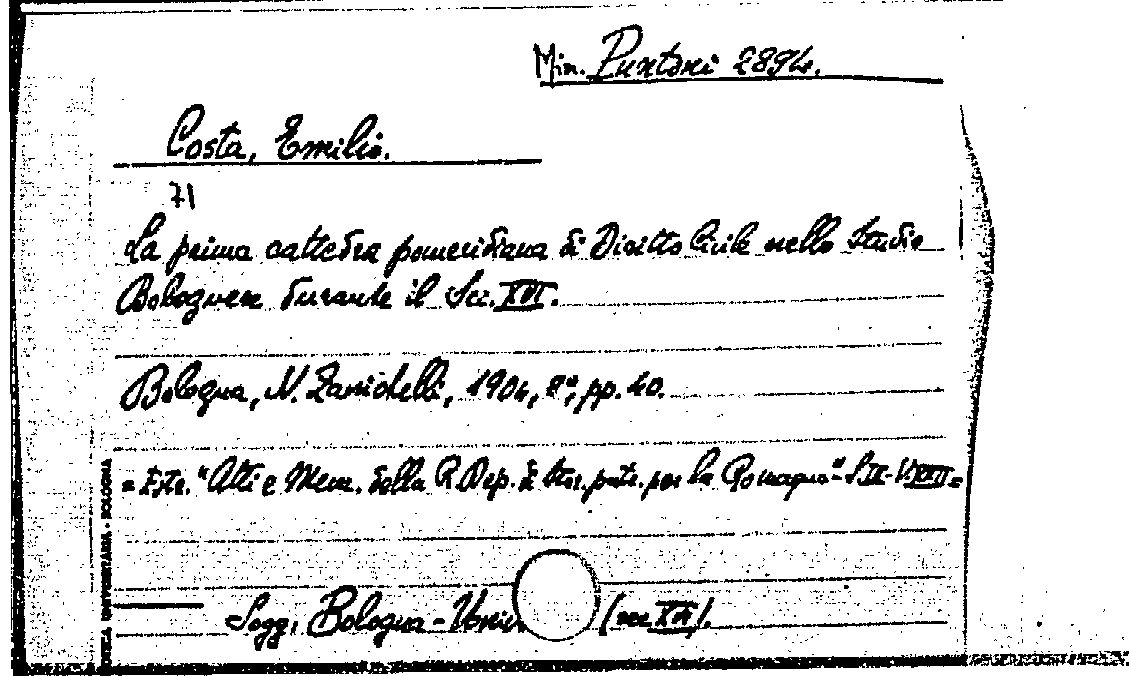 Min. Puntoni 2894.
Costa, Emilio.
71
La prima cattedra pomeridiana di Diritto Civile nello Studio
Bolognese durante il Sec. XVI.
Bologna, N. Zanichelli, 1904, 8°, pp. 40.
= Estr. "Atti e Mem. della R. Dep. di Stor. patr. per la Romagna" - S. III - V. XXII =
Sogg. Bologna - Univ. (sec XVI).
UNIVERSITARIA - BOLOGNA